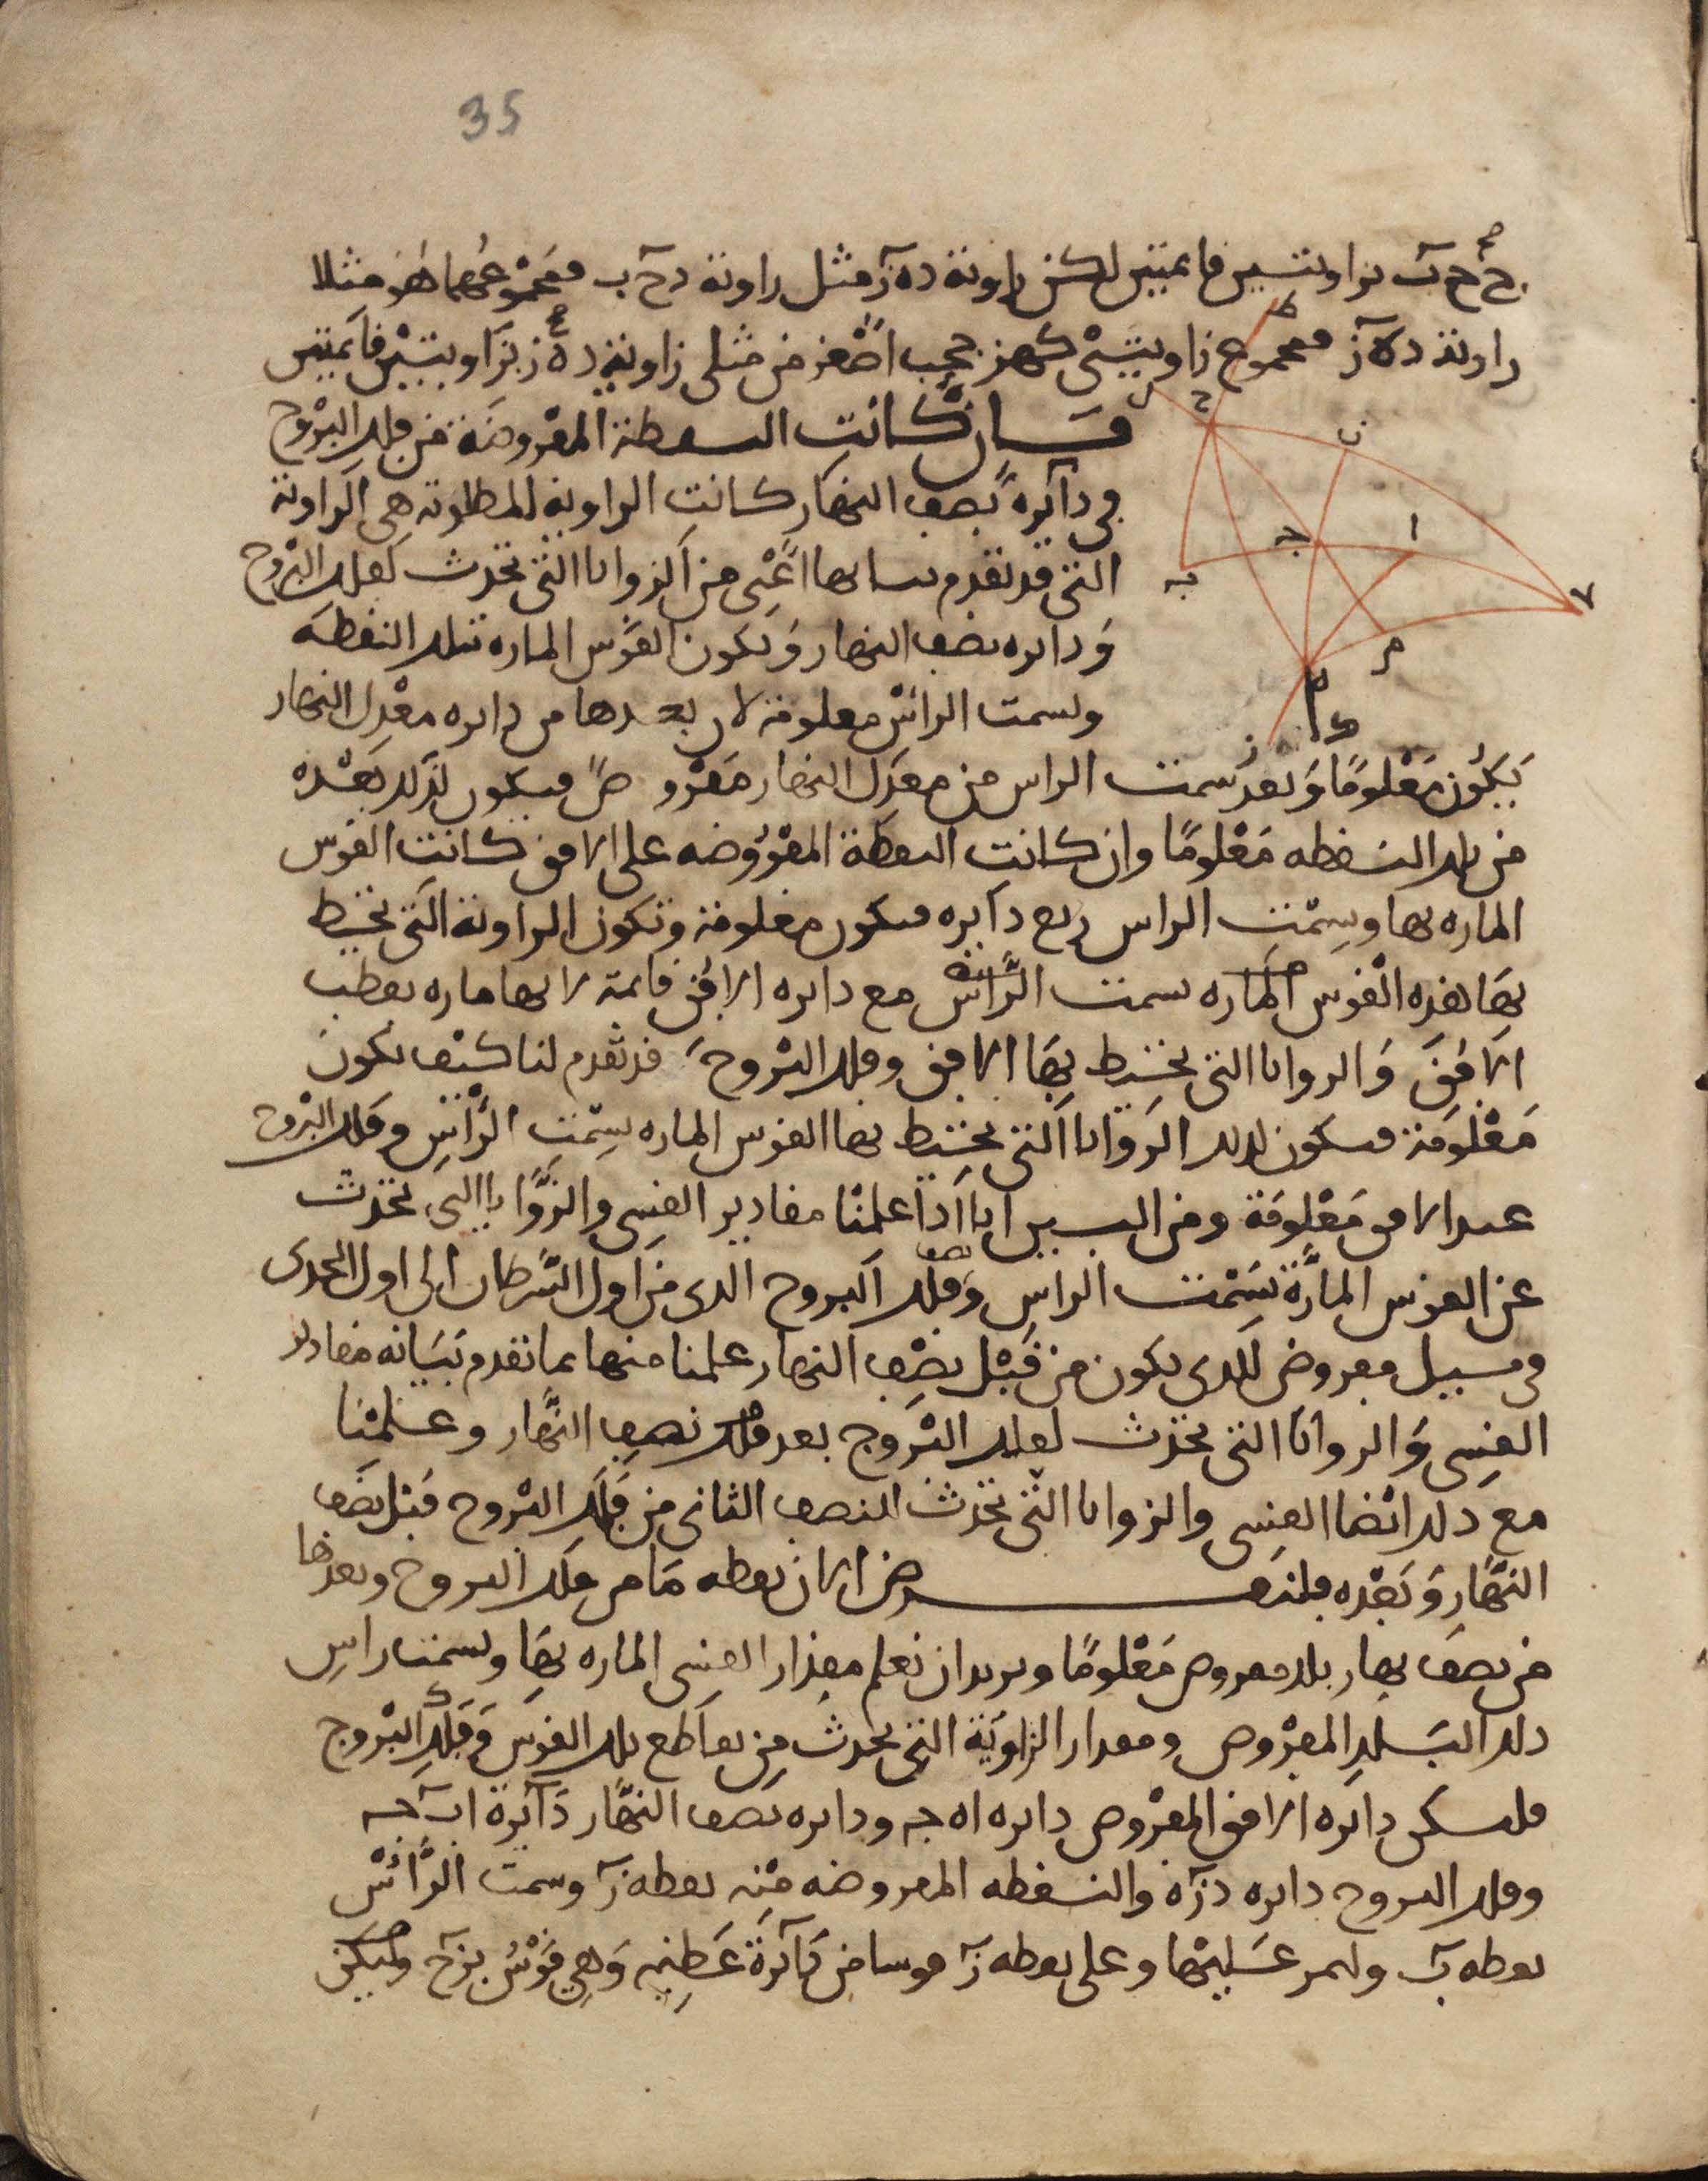 35
ح ح ب بزاويتين قائمتين لكن زاوية ده ز مثل زاوية دح ب فمجموعهما اذن مثلا
زاوية ده ز فمجموع زاويتي كهز حجب اصغر من مثلي زاوية ده ز بزاويتين قائمتين
فـان كانت النقطة المفروضة من فلك البروج
في دآيرة نصف النهار كانت الزاوية المطلوبة هي الزاوية
التي قد تقدم بيانها اعني من الزوايا التي تحدث لفلك البروج
ودايره نصف النهار وتكون القوس الماره بتلك النقطه
وبسمت الراس معلومة لان بعدها من دايره معدل النهار
يكون معلوما وبعد سمت الراس من معدل النهار مفروضا فيكون لذلك بعده
من تلك النقطه معلوما وان كانت النقطة المفروضه على الافق كانت القوس
الماره بها وسمت الراس ربع دآيره فيكون معلومة وتكون الزاوية التي تحيط
بها هذه القوس الماره بسمت الراس مع دايره الافق قايمة لانها ماره بقطب
الافق والزوايا التي تحيط بها الافق وفلك البروج قد تقدم لنا كيف تكون
معلومة فيكون لذلك الزوايا التي تحيط بها القوس الماره بسمت الراس وفلك البروج
عند الافق معلومة ومن البين انا اذا علمنا مقادير القسي والزوايا التي تحدث
عن القوس المارة بسمت الراس ونصف فلك البروج الذي من اول السرطان الى اول الجدي
في سبيل مفروض للذي يكون من قبل نصف النهار علمنا منها بما تقدم بيانه مقادير
القسي والزوايا التي تحدث لفلك البروج بعد فلك نصف النهار وعلمنا
مع ذلك ايضا القسي والزوايا التي تحدث للنصف الثاني من فلك البروج قبل نصف
النهار وبعده فلنفـرض الان نقطه ما من فلك البروج وبعدها
من نصف نهار بلد مفروض معلوما ونريد ان نعلم مقدار القسي الماره بها وبسمت راس
ذلك البلد المفروض ومقدار الزاوية التي تحدث من تقاطع تلك القوس وفلك البروج
فلتكن دايره الافق المفروض دايره اه جـ ودايره نصف النهار دآيرة اب جـ
وفلك البروج دايره دزه والنقطه المفروضه منه نقطه ز وسمت الراس
نقطه ب وليمر عليها وعلى نقطه ز قوسا من دآيرة عظيمه وهي قوس بزح وليكن